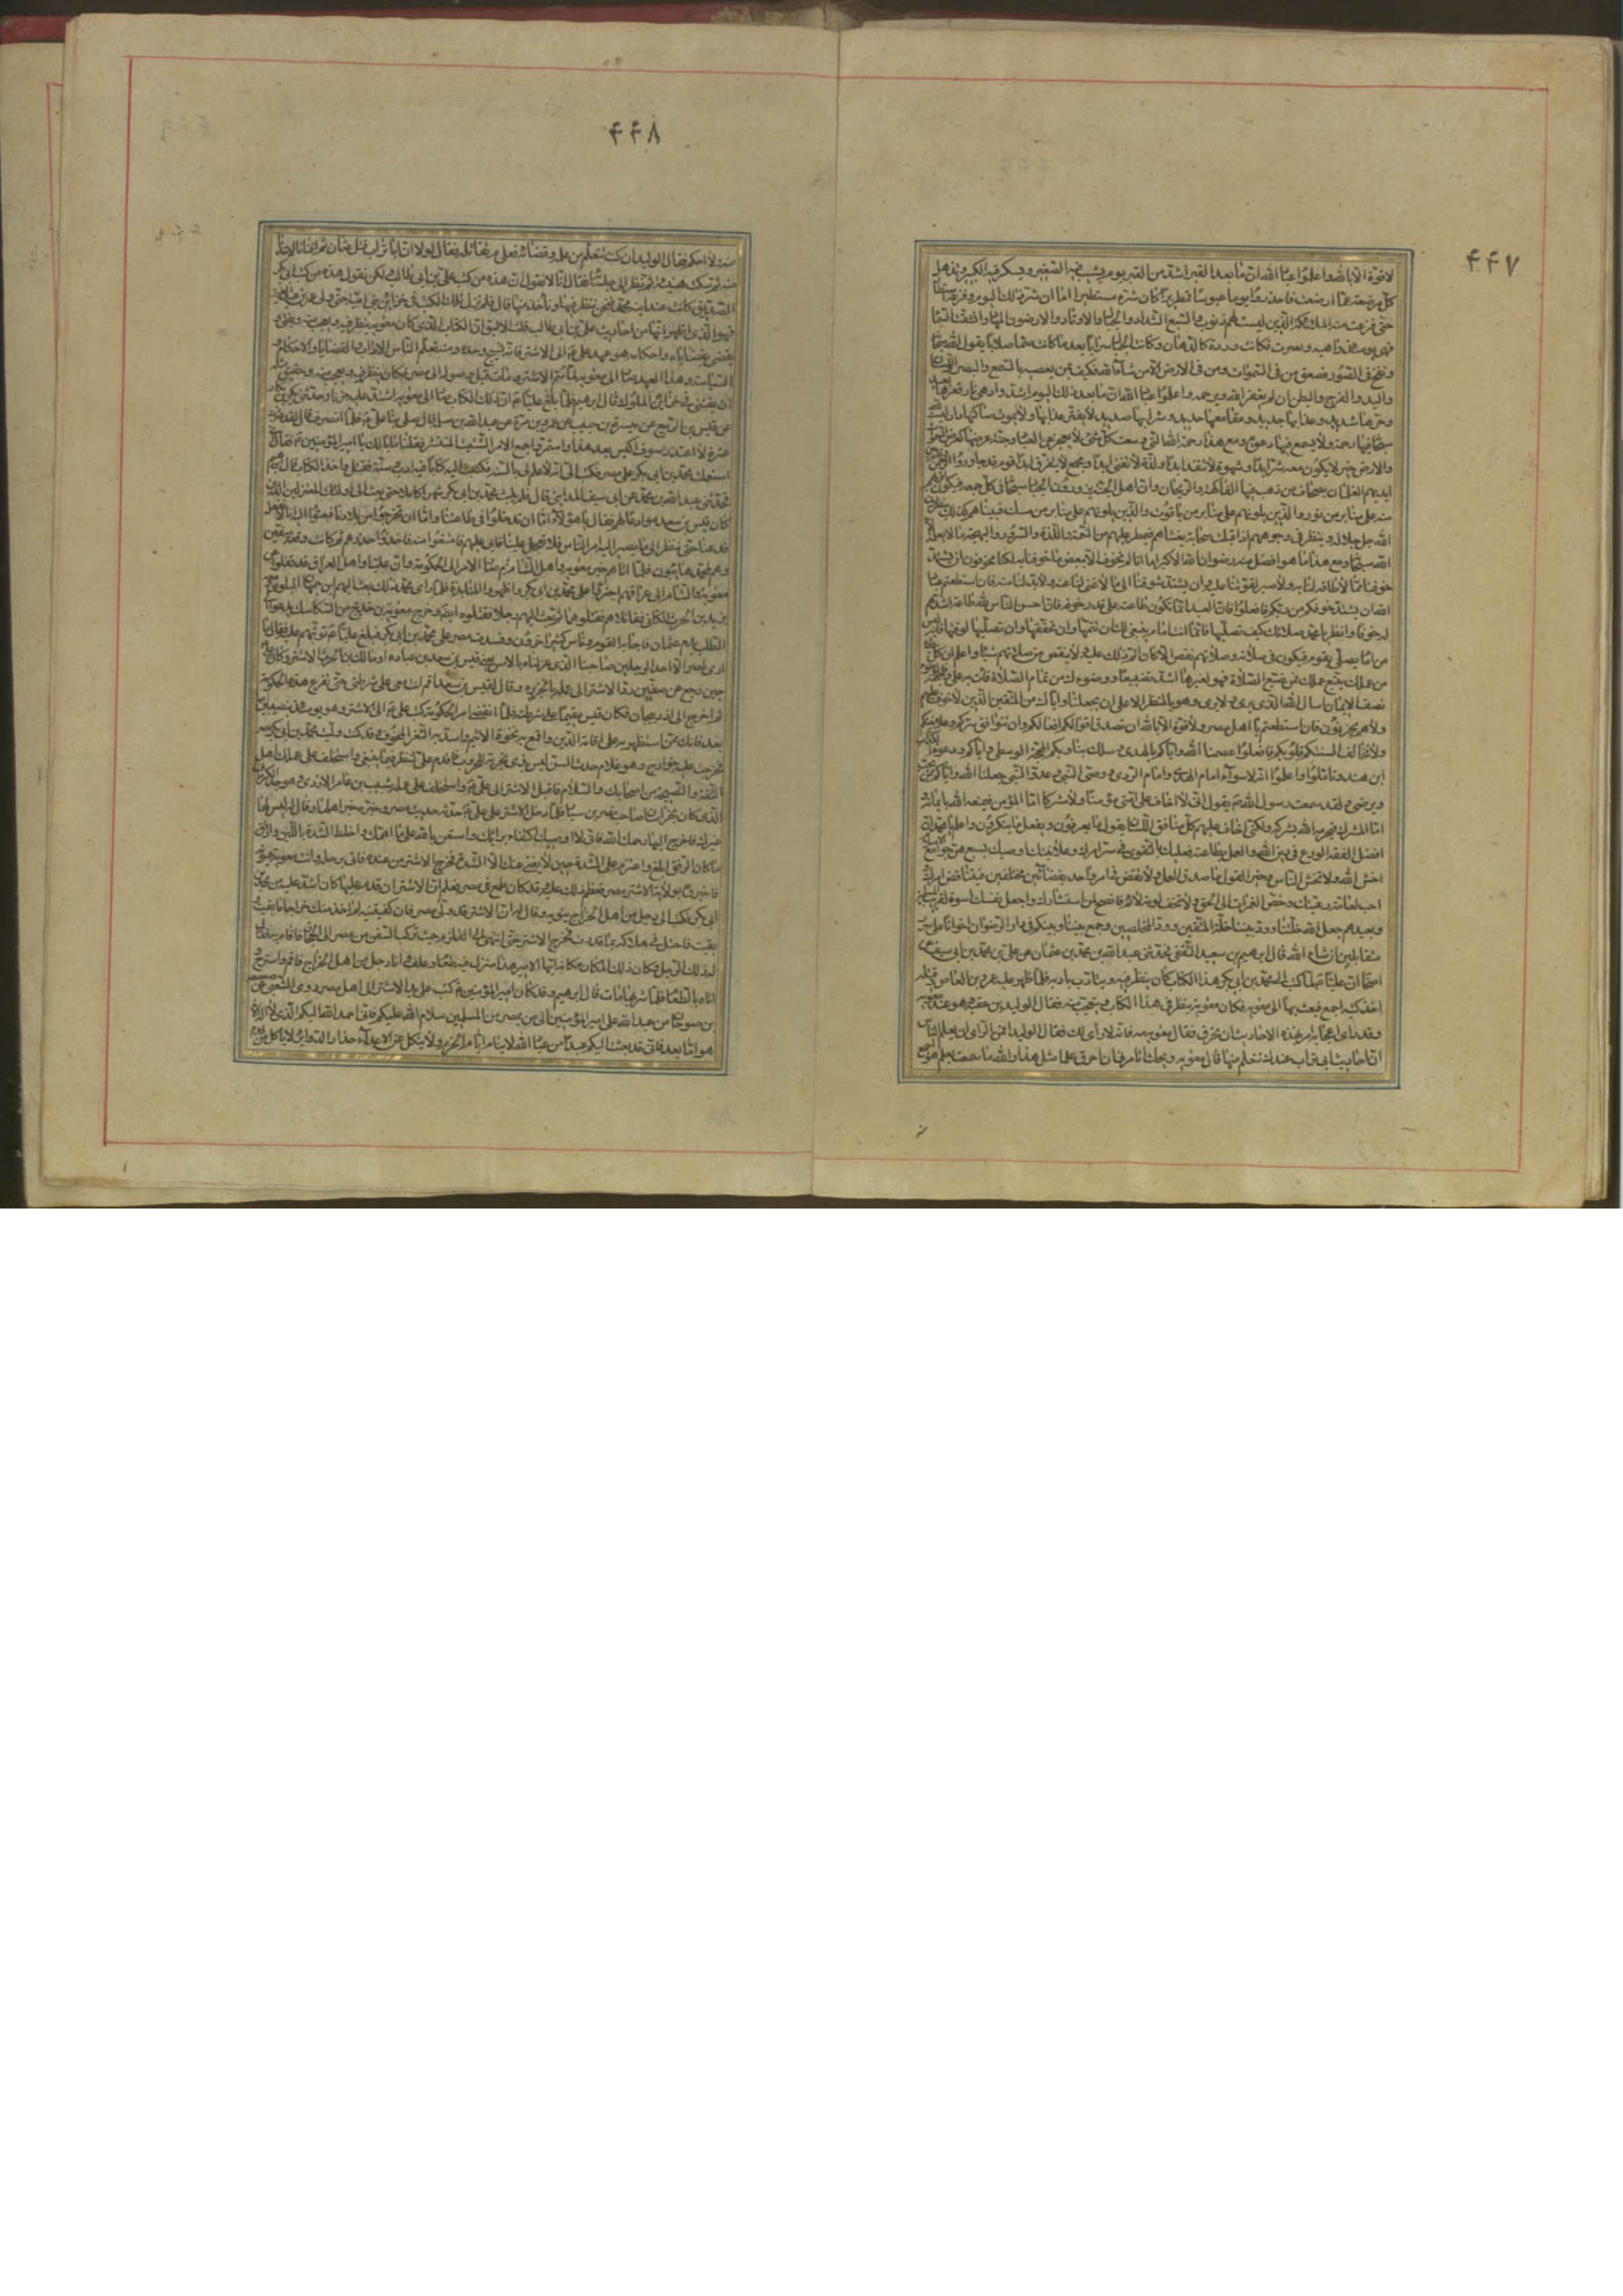 ۴۴۷
لا قوة الا بالله واعلموا عباد الله ان ما بعد القبر اشد من القبر يوم يشيب فيه الصغير ويسكر فيه الكبير وتذهل
كل مرضعة عما ارضعت فاحذروا يوما عبوسا قمطريرا كان شره مستطيرا اما ان شر ذلك اليوم وفزعه
حتى فزعت منه الملائكة الذين ليست لهم ذنوب والسبع الشداد والجبال الاوتاد والارضون المهاد وانشقت السماء
فهى يومئذ واهيه وتغيرت فكانت وردة كالدهان وكانت الجبال سرابا بعد ما كانت صما صلابا يقول الله سبحانه
ونفخ فى الصور فصعق من فى السموات ومن فى الارض الا من شاء الله فكيف بمن يعصيه بالسمع والبصر واللسان
واليد والفرج والبطن ان لم يغفر الله ويرحم واعلموا عباد الله ان ما بعد ذلك اليوم اشد وادهى نار قعرها بعيد
وحرها شديد وعذابها جديد ومقامعها حديد وشرابها صديد لا يفتر عذابها ولا يموت ساكنها دار ليست
فيها رحمة ولا يسمع فيها دعوة ومع هذا رحمة الله التى وسعت كل شئ لا تعجز عن العباد وجنة عرضها كعرض السماء
والارض خير لا يكون معه شر ابدا وشهوة لا تنفد ابدا ولذة لا تفنى ابدا ومجمع لا يتفرق ابدا قوم قد جاوروا الرحمن
ايديهم الغلمان بصحاف من ذهب فيها الفاكهة والريحان وان اهل الجنة يزورون الجبار سبحانه فى كل جمعة فيكون اقربهم
منه على منابر من نور والذين يلونهم على منابر من ياقوت والذين يلونهم على منابر من مسك فبينا هم كذلك ينظرون
الله جل جلاله وينظر فى وجوههم اذ اقبلت سحابة يغشاهم فيمطر عليهم من النعمة واللذة والسرور والبهجة ما لا يعلمه
الله سبحانه ومع هذا ما هو افضل منه رضوان الله الاكبر اما انا لو لم نخوف الا ببعض ما خوفنا به لكنا محقوقين ان يشتد
خوفنا مما لا طاقة لنا به ولا صبر لقوتنا عليه وان يشتد شوقنا الى ما لا غنى لنا عنه ولا بد لنا منه فان استطعتم عباد
الله ان يشتد خوفكم من ربكم فافعلوا فان العبد انما تكون طاعته على قدر خوفه فان احسن الناس لله طاعة اشدهم
له خوفا وانظر يا محمد صلاتك كيف تصليها فانما انت امام ينبغى لك ان تتمها وان تخففها وان تصليها لوقتها فانه ليس
من امام يصلى بقوم فيكون فى صلاته وصلاتهم نقص الا كان اثم ذلك عليه ولا ينقص من صلاتهم شيئا واعلم ان كل
من عملك يتبع صلاتك فمن ضيع الصلاة فهو لغيرها اشد تضييعا ووضوءك من تمام الصلاة فأت به على وجهه
نصف الايمان اسال الله الذى يرى ولا يرى وهو بالمنظر الاعلى ان يجعلنا واياك من المتقين الذين لا خوف عليهم
ولا هم يحزنون فان استطعتم يا اهل مصر ولا قوة الا بالله ان تصدق اقوالكم افعالكم وان يتوافق سركم وعلانيتكم
ولا تخالف السنتكم قلوبكم فافعلوا عصمنا الله واياكم بالهدى وسلك بنا وبكم المحجة الوسطى واياكم ودعوة
ابن هند وتاملوا واعلموا انه لا سواء امام الهدى وامام الردى ووصى النبى وعدو النبى جعلنا الله واياكم ممن يحب
ويرضى ولقد سمعت رسول الله ص يقول انى لا اخاف على امتى مؤمنا ولا مشركا اما المؤمن فيمنعه الله بايمانه
اما المشرك فيخزيه الله بشركه ولكنى اخاف عليهم كل منافق اللسان يقول ما يعرفون ويفعل ما ينكرون واعلم يا محمد ان
افضل الفقه الورع فى دين الله والعمل بطاعته فعليك بالتقوى فى سر امرك وعلانيتك اوصيك بسبع هن جوامع
اخش الله ولا تخش الناس وخير القول ما صدق العمل ولا تقض فى امر واحد بقضائين مختلفين فيتناقض امرك
احب لعامة رعيتك وخض الغمرات الى الحق ولا تخف لومة لائم وانصح لمن استشارك واجعل نفسك اسوة لقريب المسلمين
وبعيدهم جعل الله خلتنا وودنا خلة المتقين وود المخلصين وجمع بيننا وبينكم فى دار الرضوان اخوانا على سرر
متقابلين ان شاء الله قال ابرهيم بن سعيد الثقفى فحدثنى عبد الله بن محمد بن عثمان عن على بن محمد بن ابى سيف عن
اصحابه ان عليا لما كتب الى محمد بن ابى بكر هذا الكتاب كان ينظر فيه ويتادب بادبه فلما ظهر عليه عمرو بن العاص وقتله
اخذ كتبه اجمع فبعث بها الى معويه فكان معويه ينظر فى هذا الكتاب ويتعجب منه فقال الوليد بن عقبه وهو عند معويه
وقد راى اعجابه به مر بهذه الاحاديث ان تحرق فقال معويه مه فانه لا راى لك فقال الوليد افمن الراى ان يعلم الناس
ان احاديث ابى تراب عندك تتعلم منها قال معويه ويحك اتامرنى ان احرق علما مثل هذا والله ما سمعت بعلم هو اجمع
۴۴۸
منه ولا احكم فقال الوليد ان كنت تعجب من علمه وقضائه فعلى م تقاتله فقال لولا ان ابا تراب قتل عثمان ثم افتانا لاخذنا
عنه ثم سكت هنيئة ثم نظر الى جلسائه فقال انا لا نقول ان هذه من كتب على بن ابى طالب ولكن نقول هذه من كتب ابى بكر
الصديق كانت عند ابنه محمد فنحن ننظر فيها وناخذ منها قال فلم تزل تلك الكتب فى خزائن بنى امية حتى ولى عمر بن عبد العزيز
فهو الذى اظهر انها من احاديث على بن ابى طالب قلت الاليق ان الكتاب الذى كان معويه ينظر فيه ويعجب منه ويفتى به
ويقضى بقضاياه واحكامه هو عهد على ع الى الاشتر فانه نسيج وحده ومنه تعلم الناس الاداب والقضايا والاحكام و
السياسة وهذا العهد صار الى معويه لما سم الاشتر ومات قبل وصوله الى مصر فكان ينظر فيه ويعجب منه وحقيق مثله
ان يقتنى فى خزائن الملوك قال ابرهيم فلما بلغ عليا ع ان ذلك الكتاب صار الى معويه اشتد عليه حزنا وحدثنى بكر بن بكار
عن قيس بن الربيع عن ميسرة بن حبيب عن عمرو بن مرة عن عبد الله بن سلمة قال صلى بنا على ع فلما انصرف قال لقد عثرت
عثرة لا اعتذر سوف اكيس بعدها واستمر واجمع الامر الشتيت المنتشر فقلنا ما بالك يا امير المؤمنين ع فقال انى
استعملت محمد بن ابى بكر على مصر فكتب الى انه لا علم لى بالسنة فكتبت اليه كتابا فيه ادب وسنة فقتل واخذ الكتاب قال ابرهيم
فحدثنى عبد الله بن محمد عن ابى سيف المداينى قال فلم يلبث محمد بن ابى بكر شهرا كاملا حتى بعث الى اولئك المعتزلين الذين
كان قيس بن سعد موادعا لهم فقال يا هؤلاء اما ان تدخلوا فى طاعتنا واما ان تخرجوا من بلادنا فبعثوا اليه انا لا نفعل
فدعنا حتى ننظر الى ما يصير اليه امر الناس فلا تعجل علينا فابى عليهم فامتنعوا منه فاخذوا حذرهم ثم كانت وقعة صفين
وهم لمحمد هائبون فلما اتاهم خبر معويه واهل الشام ثم صار الامر الى الحكومة وان عليا واهل العراق قد قفلوا عن
معويه والشام الى عراقهم اجترؤا على محمد بن ابى بكر واظهروا المنابذة له فلما راى محمد ذلك بعث اليهم ابن جمهان البلوى ومعه
يزيد بن الحرث الكنانى فقاتلاهم فقتلوهما ثم بعث اليهم رجلا فقتلوه ايضا وخرج معويه بن خديج من السكاسك يدعو الى
الطلب بدم عثمان فاجابه القوم وناس كثير اخرون وفسدت مصر على محمد بن ابى بكر فبلغ عليا ع توثبهم عليه فقال ما
ارى لمصر الا احد الرجلين صاحبنا الذى عزلناه بالامس يعنى قيس بن سعد بن عباده او مالك بن الحرث الاشتر وكان على
حين رجع عن صفين رد الاشتر الى عمله بالجزيره وقال لقيس بن سعد اقم انت معى على شرطتى حتى نفرغ من هذه الحكومة
ثم اخرج الى اذربيجان فكان قيس مقيما على شرطته فلما انقضى امر الحكومة كتب على ع الى الاشتر وهو يومئذ بنصيبين اما
بعد فانك ممن استظهر به على اقامة الدين واقمع به نخوة الاثيم واسد به الثغر المخوف وقد كنت وليت محمد بن ابى بكر مصر
فخرجت عليه خوارج وهو غلام حدث السن ليس بذى تجربة للحروب فاقدم على لننظر فيما ينبغى واستخلف على عملك اهل
الثقة والنصيحة من اصحابك والسلام فاقبل الاشتر الى على ع واستخلف على عمله شبيب بن عامر الازدى وهو جد الكرمانى
الذى كان بخراسان صاحب نصر بن سيار فلما دخل الاشتر على على ع حدثه حديث مصر وخبره خبر اهلها وقال له ليس لها
غيرك فاخرج اليها رحمك الله فانى لا اوصيك اكتفاء برايك واستعن بالله على ما اهمك واخلط الشدة باللين وارفق
ما كان الرفق ابلغ واعتزم على الشدة حين لا يغنى عنك الا الشدة فخرج الاشتر من عنده فاتى برحله واتت معويه عيونه
فاخبروه بولاية الاشتر مصر فعظم ذلك عليه وقد كان طمع فى مصر فعلم ان الاشتر ان قدم عليها كان اشد عليه من محمد بن
ابى بكر فكتب الى رجل من اهل الخراج يثق به وقال له ان الاشتر قد ولى مصر فان كفيتنيه لم اخذ منك خراجا ما بقيت
بقيت فاحتل فى هلاكه بما قدرت فخرج الاشتر حتى انتهى الى القلزم حيث تركب السفن من مصر الى الحجاز فاقام به فقال
له ذلك الرجل وكان ذلك المكان مكانه ايها الامير هذا منزل فيه طعام وعلف وانا رجل من اهل الخراج فاقم واسترح و
اتاه بالطعام فلما شربها مات قال ابرهيم وقد كان امير المؤمنين ع كتب على يد الاشتر الى اهل مصر روى الشعبى عن صعصعة
بن صوحان من عبد الله على امير المؤمنين الى من بمصر من المسلمين سلام الله عليكم فانى احمد الله اليكم الذى لا اله الا
هو اما بعد فانى قد بعثت اليكم عبدا من عباد الله لا ينام ايام الخوف ولا ينكل عن الاعداء حذار الدوائر لا ناكل من قدم